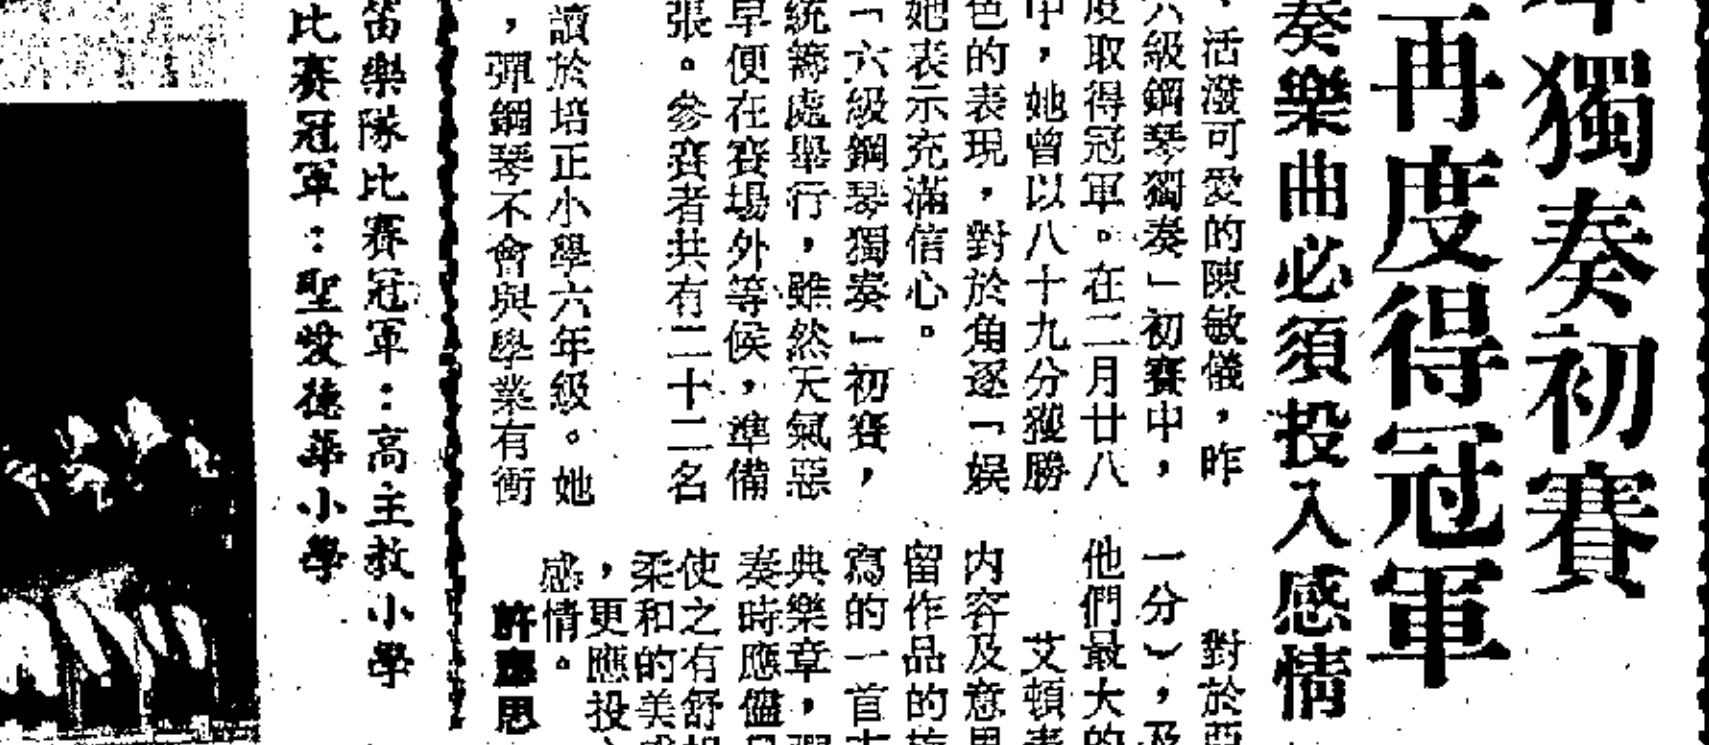 獨奏初賽
再度得冠軍
奏樂曲必須投入感情
活潑可愛的陳敏儀，昨
六級鋼琴獨奏」初賽中，
度取得冠軍。在二月廿八
中，她曾以八十九分獲勝
色的表現，對於角逐「娛
她表示充滿信心。
「六級鋼琴獨奏」初賽，
統籌處舉行，雖然天氣惡
早便在賽場外等候，準備
張。參賽者共有二十二名
讀於培正小學六年級。她
，彈鋼琴不會與學業有衝
對於
一分），及
他們最大的
艾頓
內容及意
留作品的
寫的一首
典樂章，
奏時應儘
使之有舒
柔和的美
，更應投
感情。
許應思
笛樂隊比賽冠軍：高主教小學
比賽冠軍：聖愛德華小學